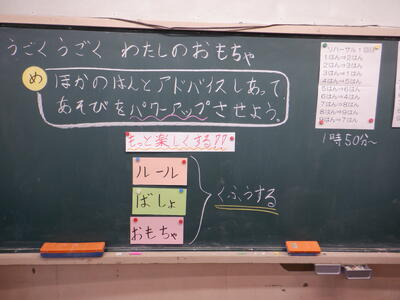 うごくうごく わたしのおもちゃ
め
ほかのはんとアドバイスしあって
あそびをパワーアップさせよう。
もっと楽しくする??
ルール
ばしょ
おもちゃ
くふうする
リハーサル1回目
1はん⇒2はん
2はん⇒3はん
3はん⇒1はん
4はん⇒5はん
5はん⇒6はん
6はん⇒4はん
7はん⇒8はん
8はん⇒9はん
9はん⇒7はん
1時50分~